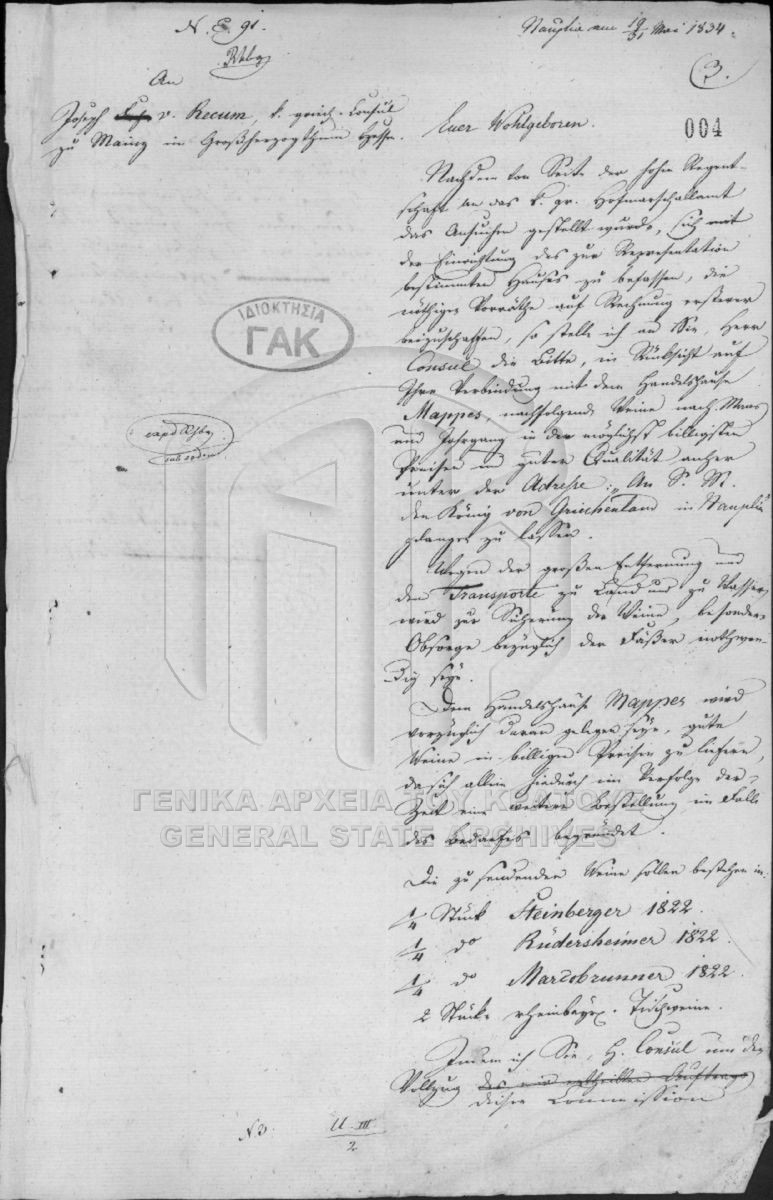 N. E. 91.
Nauplia am 19/31 Mai 1834.
An
3.
Joseph v. Recum, k. griech. Consul
zu Mainz im Großherzogthum Hessen.
Euer Wohlgeboren.
004
Nachdem von Seite der hohen Regent-
schaft an das k. gr. Hofmarschallamt
das Ansuchen gestellt wurde, sich mit
der Einrichtung des zur Representation
bestimmten Hauses zu befassen, die
nöthigen Vorräthe auf Rechnung ersterer
beizuschaffen, so stelle ich an Sie, Herr
Consul die Bitte, in Rücksicht auf
Ihre Verbindung mit dem Handelshause
Mappes, nachfolgende Weine nach Maas
und Jahrgang in den möglichst billigsten
Preisen und guter Qualität anher
unter der Adresse: „An S. M.
den König von Griechenland in Nauplia“
gelangen zu lassen.
Wegen der großen Entfernung und
dem Transporte zu Land und zu Wasser
wird zur Sicherung der Weine, besondere
Obsorge bezüglich der Fäßer nothwen-
dig seyn.
Dem Handelshause Mappes wird
vorzüglich daran gelegen seyn, gute
Weine in billigen Preisen zu liefern,
da sich allein hiedurch im Verfolge der
Zeit eine weitere Bestellung im Falle
des Bedarfes begründet.
Die zu sendenden Weine sollen bestehen in:
1/4 Stück Steinberger 1822.
1/4 do Rüdersheimer 1822.
1/4 do Marcobrunner 1822.
2 Stücke rheinbayr. Tischweine.
Indem ich Sie, H. Consul um den
Vollzug des mir ertheilten Auftrags
dieser Commission
U. III
2
ΙΔΙΟΚΤΗΣΙΑ
ΓΑΚ
ΓΕΝΙΚΑ ΑΡΧΕΙΑ ΤΟΥ ΚΡΑΤΟΥΣ
GENERAL STATE ARCHIVES